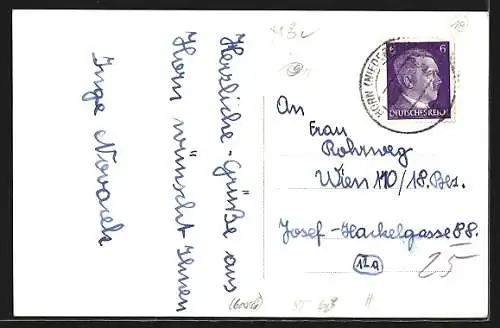 Herzliche-Grüße aus
Horn wünscht Ihnen
Inge Novacek
An
Frau
Rohrweg
Wien 110/18. Bez.
Josef-Hackelgasse 88.
12a
25
HORN (NIEDER
6 6
DEUTSCHES REICH
18